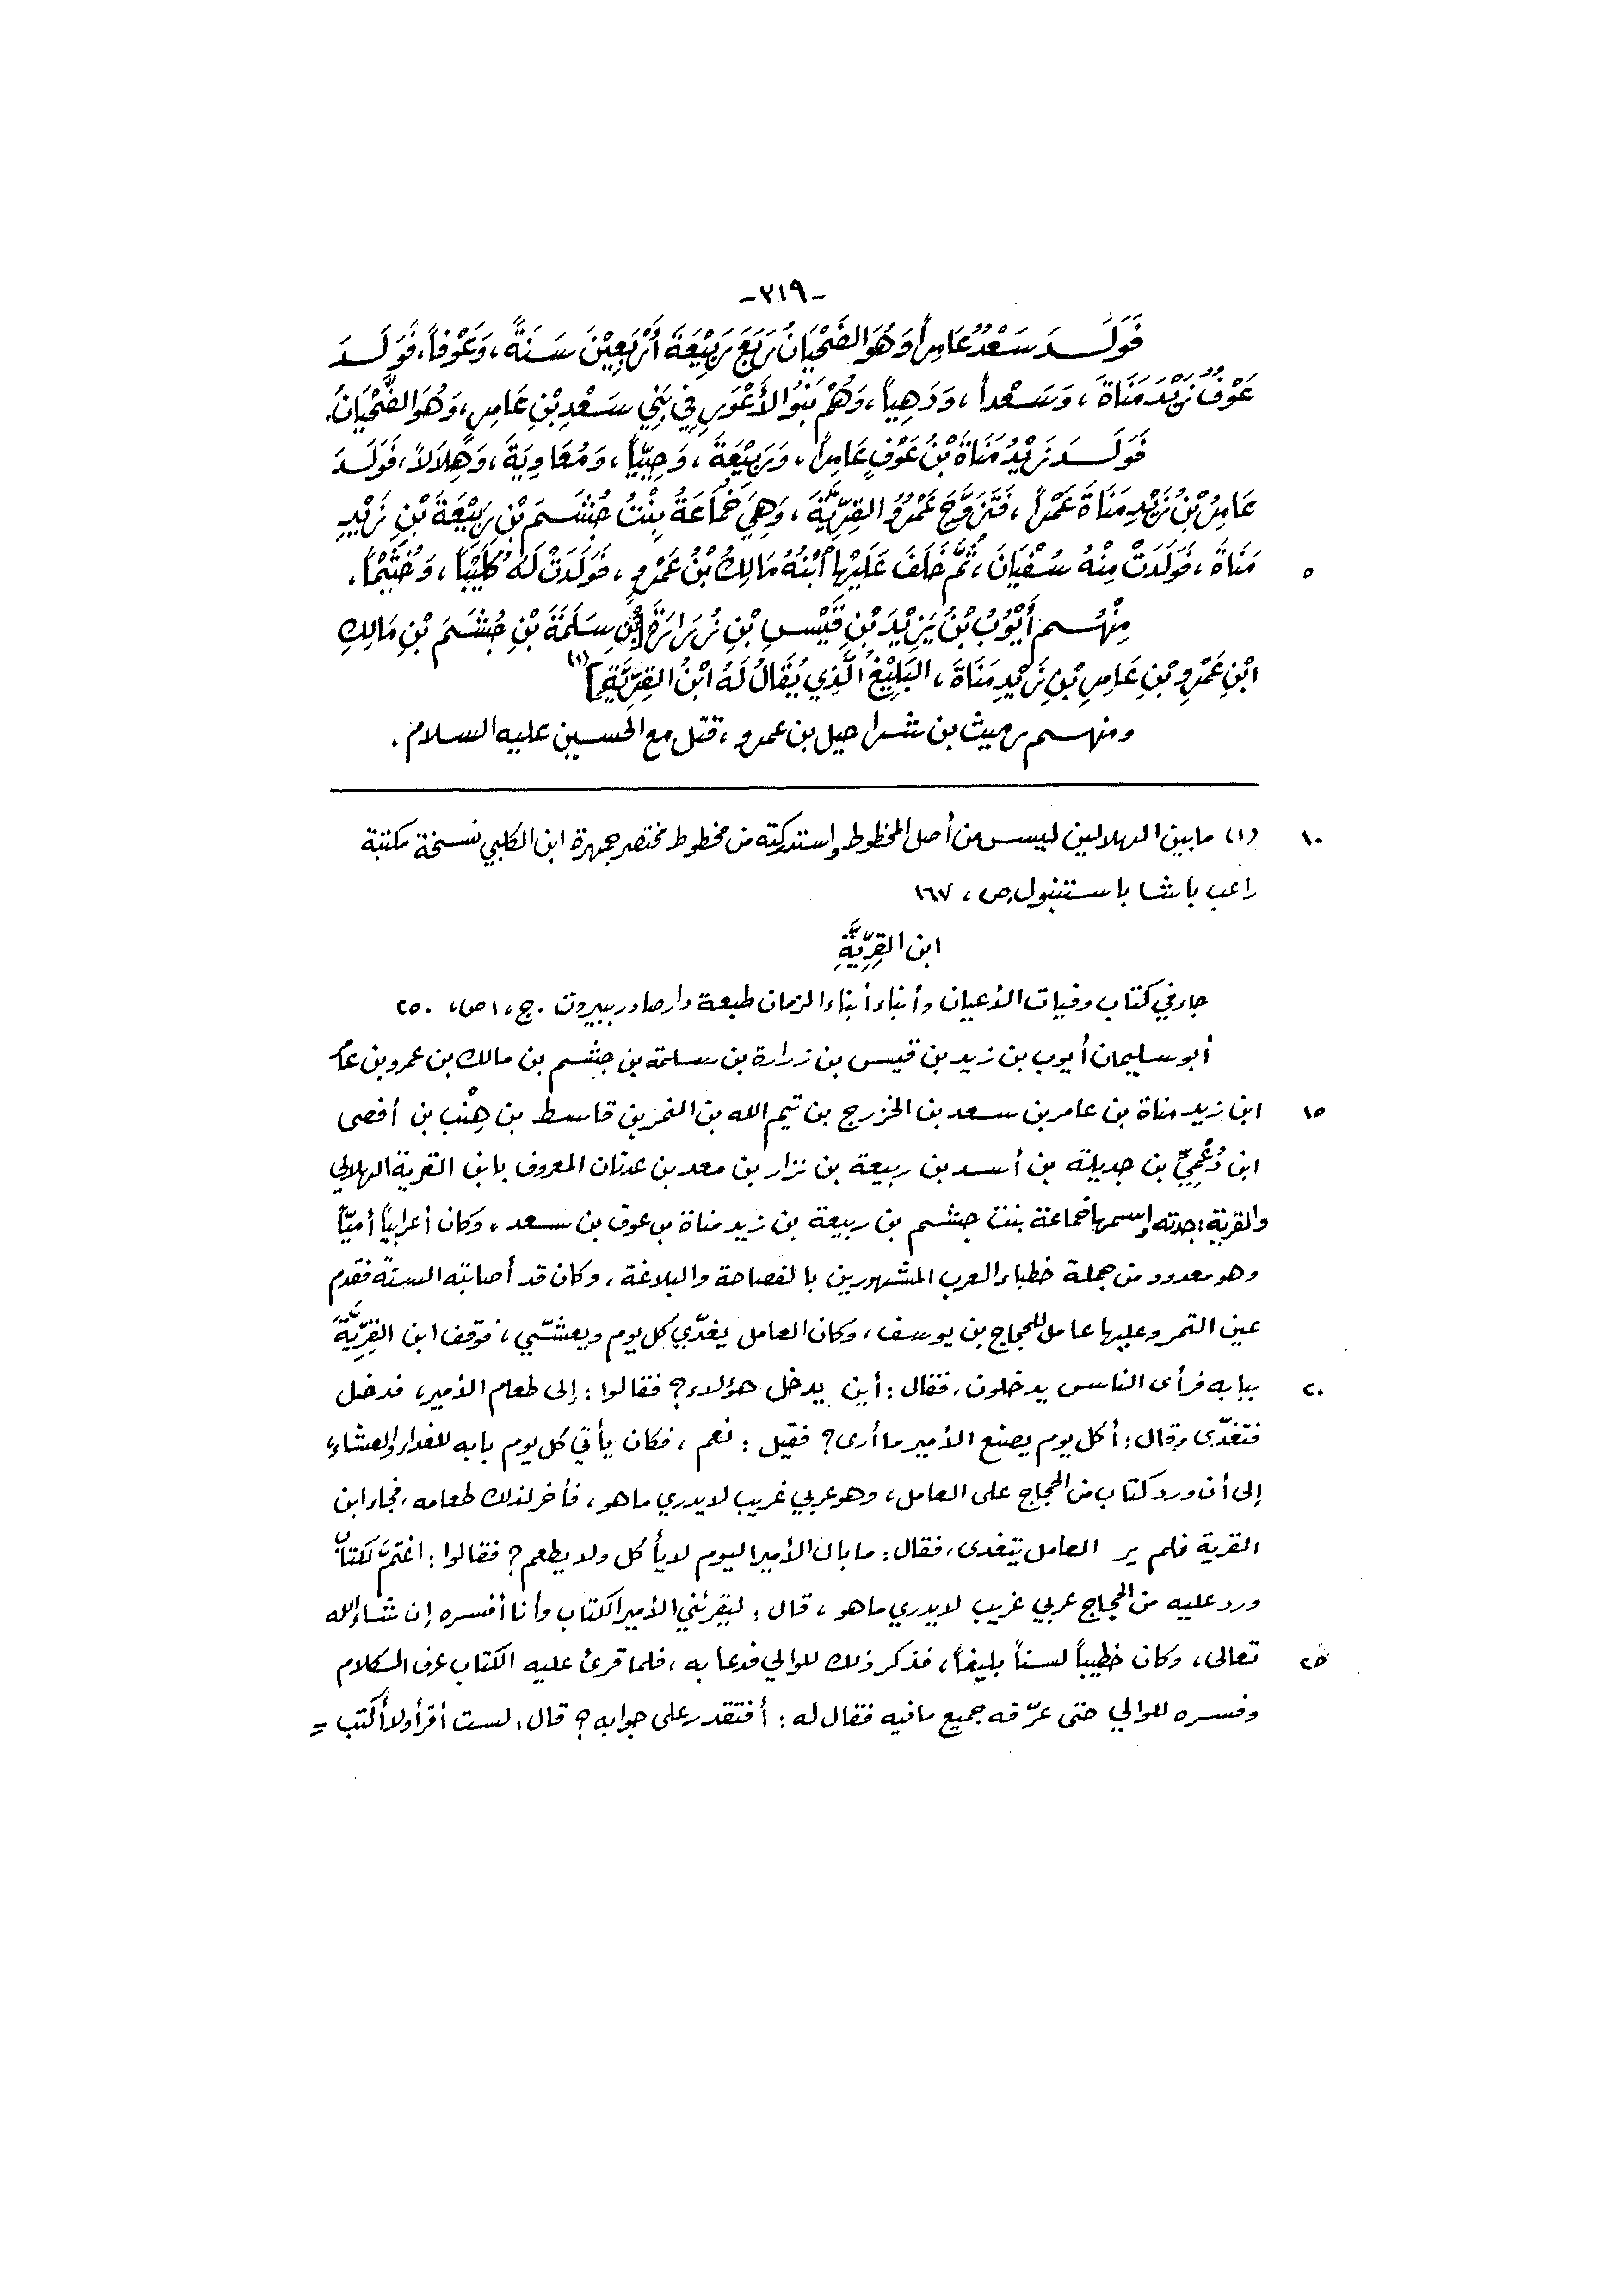 -٣١٩-
فَوَلَدَ سَعْدٌ عَامِراً وَهُوَ الضَّحْيَانُ رَبَعَ رَبِيْعَةَ أَرْبَعِيْنَ سَنَةً، وَعَوْفاً، فَوَلَدَ
عَوْفٌ زَيْدَ مَنَاةَ، وَسَعْداً، وَدَهِيّاً، وَهُمْ بَنُو الأَعْوَرِ فِي بَنِي سَعْدِ بْنِ عَامِرٍ، وَهُوَ الضَّحْيَانُ.
فَوَلَدَ زَيْدُ مَنَاةَ بْنُ عَوْفٍ عَامِراً، وَرَبِيْعَةَ، وَحِيِيّاً، وَمُعَاوِيَةَ، وَهِلاَلاً، فَوَلَدَ
عَامِرُ بْنُ زَيْدِ مَنَاةَ عَمْراً، فَتَزَوَّجَ عَمْرٌو القِرِّيَّةَ، وَهِيَ خُمَاعَةُ بِنْتُ جُشَمَ بْنِ رَبِيْعَةَ بْنِ زَيْدِ
٥ مَنَاةَ، فَوَلَدَتْ مِنْهُ سُفْيَانَ، ثُمَّ خَلَفَ عَلَيْهَا ابْنُهُ مَالِكُ بْنُ عَمْرٍو، فَوَلَدَتْ لَهُ كُلَيْباً، وَجُشَيْماً.
مِنْهُم أَيُّوبُ بْنُ يَزِيْدَ بْنِ قَيْسِ بْنِ زُرَارَةَ [بْنِ سَلَمَةَ بْنِ جُشَمَ بْنِ مَالِكِ
ابْنِ عَمْرِو بْنِ عَامِرِ بْنِ زَيْدِ مَنَاةَ، البَلِيْغُ الَّذِي يُقَالُ لَهُ ابْنُ القِرِّيَّةِ] (١)
ومنهم رميث بن شراحيل بن عمرو، قتل مع الحسين عليه السلام.
١٠ (١) ما بين الهلالين ليس من أصل المخطوط واستدركته من مخطوط مختصر جمهرة ابن الكلبي نسخة مكتبة
راغب باشا باستنبول ص، ١٦٧
ابن القِرِّيَّةِ
جاء في كتاب وفيات الأعيان وأنباء أبناء الزمان طبعة دار صادر ببيروت. ج، ١ ص، ٢٥٠
أبو سليمان أيوب بن زيد بن قيس بن زرارة بن سلمة بن جشم بن مالك بن عمرو بن عامر
١٥ ابن زيد مناة بن عامر بن سعد بن الخزرج بن تيم الله بن النمر بن قاسط بن هِنْب بن أفصى
ابن دُعْمِيّ بن جديلة بن أسد بن ربيعة بن نزار بن معد بن عدنان المعروف بابن القرية الهلالي
والقرية: جدته واسمها خماعة بنت جشم بن ربيعة بن زيد مناة بن عوف بن سعد، وكان أعرابياً أميّاً
وهو معدود من جملة خطباء العرب المشهورين بالفصاحة والبلاغة، وكان قد أصابته السنة فقدم
عين التمر وعليها عامل للحجاج بن يوسف، وكان العامل يغدّي كل يوم ويعشّي، فوقف ابن القِرِّيَّة
٢٠ ببابه فرأى الناس يدخلون، فقال: أين يدخل هؤلاء؟ فقالوا: إلى طعام الأمير، فدخل
فتغدّى وقال: أكل يوم يصنع الأمير ما أرى؟ فقيل: نعم، فكان يأتي كل يوم بابه للغداء والعشاء،
إلى أن ورد كتاب من الحجاج على العامل، وهو عربي غريب لا يدري ما هو، فأخر لذلك طعامه، فجاء ابن
القرية فلم ير العامل يتغدى، فقال: ما بال الأمير اليوم لا يأكل ولا يطعم؟ فقالوا: اغتمَّ لكتاب
ورد عليه من الحجاج عربي غريب لا يدري ما هو، قال: ليقرئني الأمير الكتاب وأنا أفسره إن شاء الله
٢٥ تعالى، وكان خطيباً لسناً بليغاً، فذكر ذلك للوالي فدعا به، فلما قرئ عليه الكتاب عرف الكلام
وفسره للوالي حتى عرّفه جميع ما فيه فقال له: أفتقدر على جوابه؟ قال: لست أقرأ ولا أكتب =